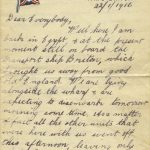 22/1/1916
Dear Everybody,
Well here I am
back in Egypt & at the present
moment still on board the
transport ship Briton, which
brought us away from good
old England. We are lying
alongside the wharf & are
expecting to disembark tomorrow
morning some time
most all the other units that
were here with us went off
this afternoon, leaving only